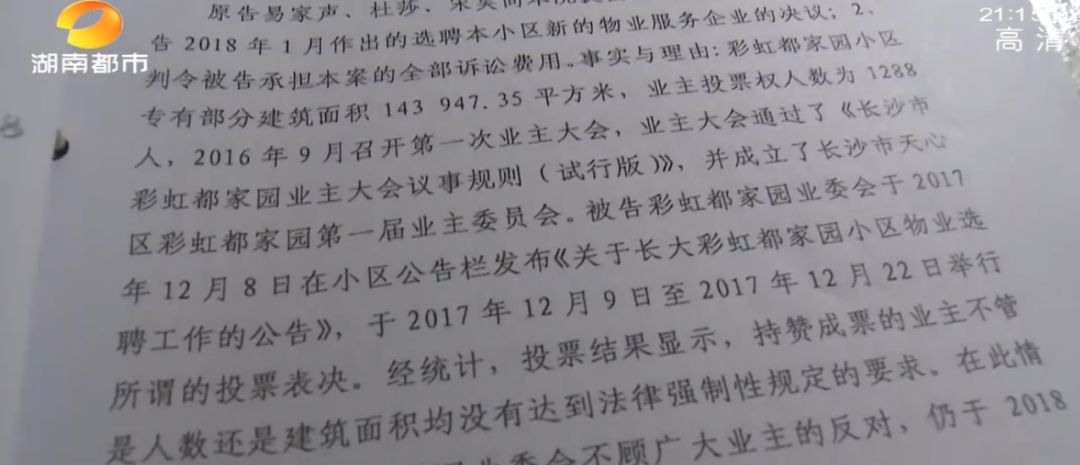 湖南都市
21:15
高清
原告易家声、杜莎、
告2018年1月作出的选聘本小区新的物业服务企业的决议；2、
判令被告承担本案的全部诉讼费用。事实与理由：彩虹都家园小区
专有部分建筑面积143 947.35平方米，业主投票权人数为1288
人，2016年9月召开第一次业主大会，业主大会通过了《长沙市
彩虹都家园业主大会议事规则（试行版）》，并成立了长沙市天心
区彩虹都家园第一届业主委员会。被告彩虹都家园业委会于2017
年12月8日在小区公告栏发布《关于长大彩虹都家园小区物业选
聘工作的公告》，于2017年12月9日至2017年12月22日举行
所谓的投票表决。经统计，投票结果显示，持赞成票的业主不管
是人数还是建筑面积均没有达到法律强制性规定的要求。在此情
业委会不顾广大业主的反对，仍于2018